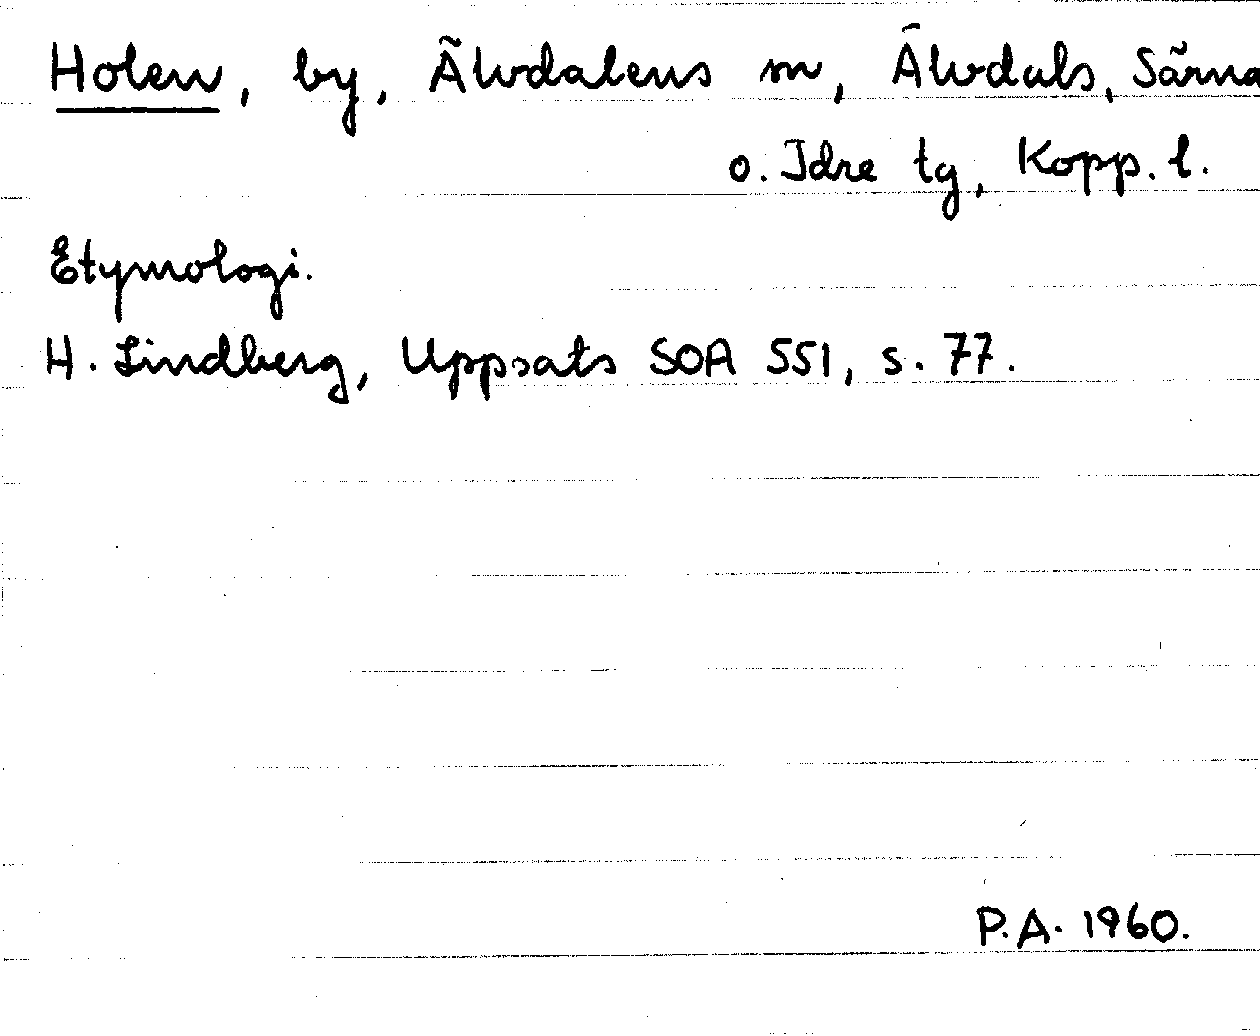 Holen, by, Älvdalens sn, Älvdals, Särna
o. Idre tg, Kopp. l.
Etymologi.
H. Lindberg, Uppsats SOA 551, s. 77.
P.A. 1960.